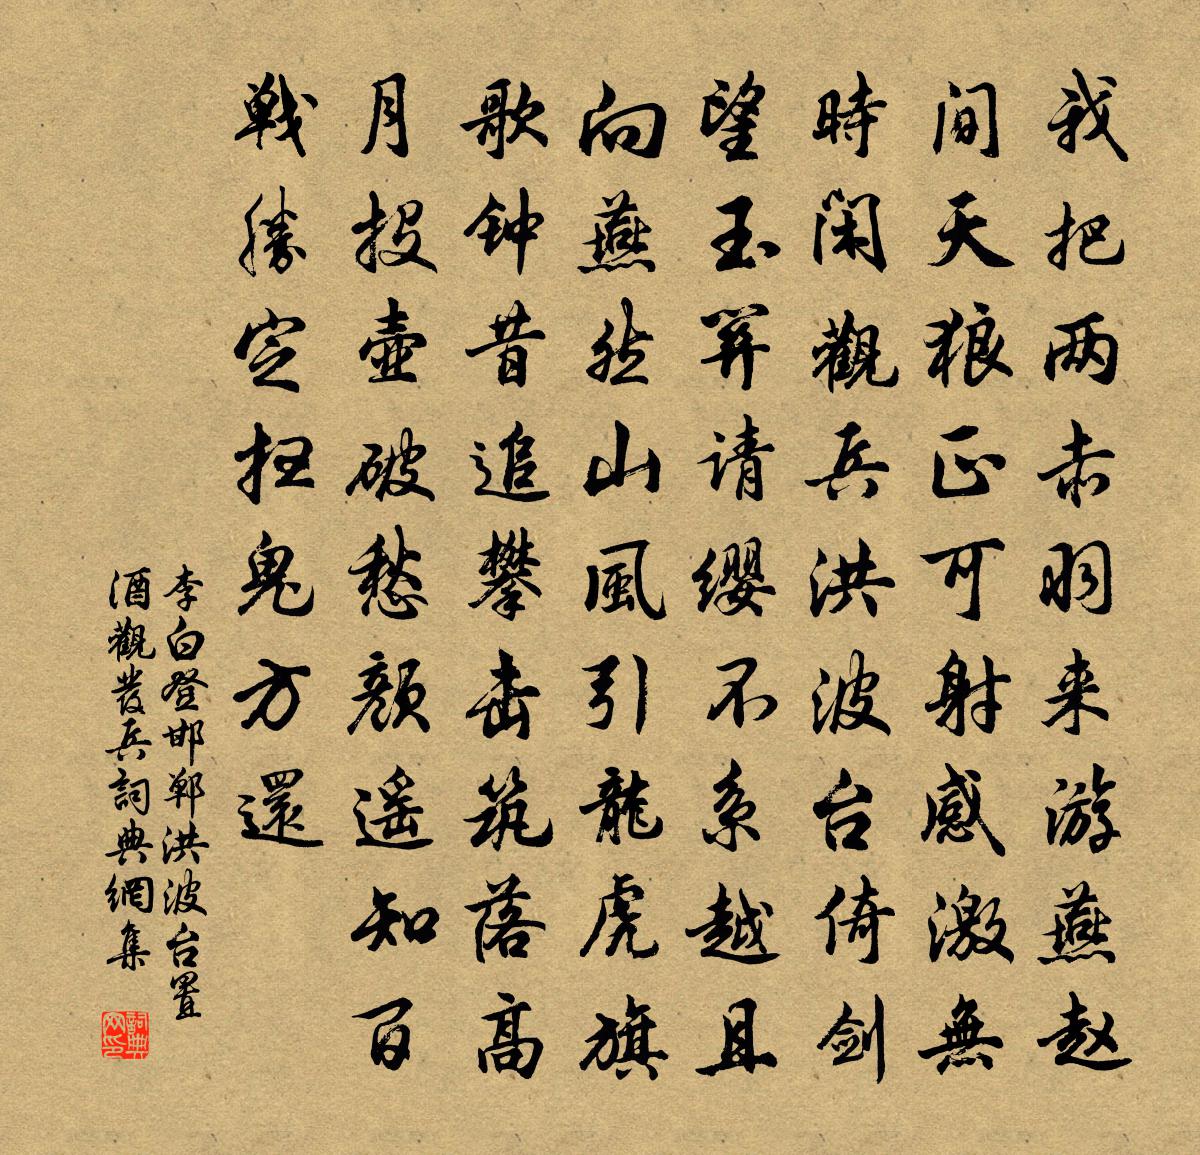 我把两赤羽来游燕赵
间天狼正可射感激無
時闲觀兵洪波台倚剑
望玉筓请缨不系越且
向燕然山風引龍虎旗
歌钟昔追攀击筑落高
月投壶破愁颜遥知百
戰勝定扫鬼方還
李白登邯郸洪波台置
酒觀發兵詞典網集
詞典
网印